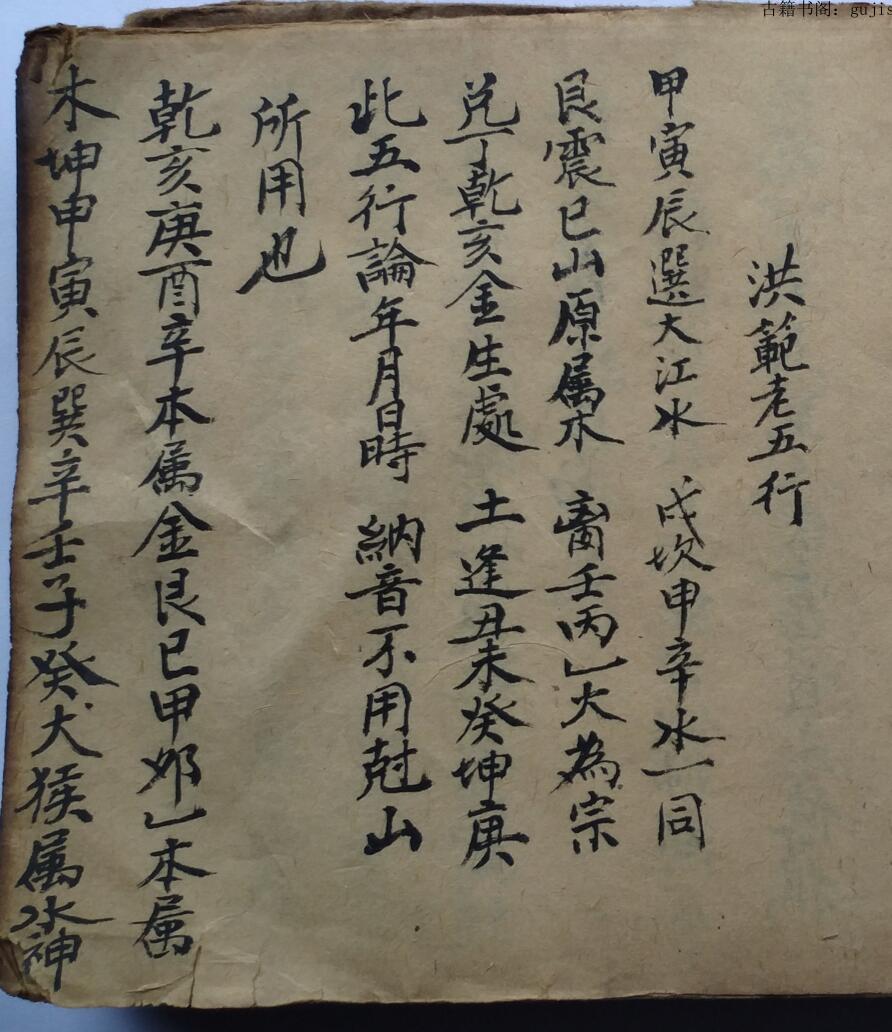 古籍书阁：gujis
洪範老五行
甲寅辰選大江水 戌坎申辛水一同
艮震巳山原属木 离壬丙乚火為宗
兑丁乾亥金生處 土逢丑未癸坤庚
此五行論年月日時 納音不用尅山
所用也
乾亥庚酉辛本属金艮巳甲夘乚本属
木坤申寅辰巽辛壬子癸犬猴属水神